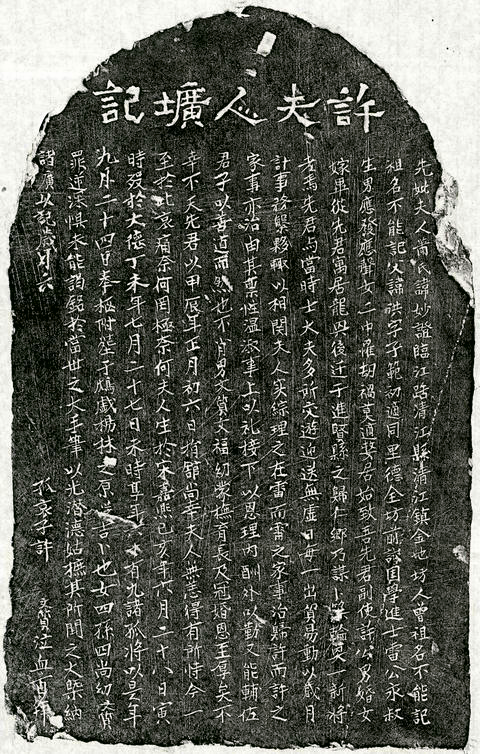 許夫人壙記
先妣夫人尚氏諱妙證臨江路清江縣清江鎮金地坊人曾祖名不能記
祖名不能記父諱洪字子範初適同里德全坊前請国學進士雷公永叔
生男應發應聲女二中罹劫禍莫適嫠居始致吾先君副使許公男婚女
嫁畢從先君寓居龍興後迁于進賢縣之歸仁鄉乃謀卜築輪奐一新將
老焉先君与當時士大夫多所交遊迎送無虛日每一出貿易動以歳月
計事務夥輙以相関夫人实綜理之在雷而雷之家事治歸許而許之
家事亦治由其稟性温淑事上以礼接下以恩理内酬外以勤又能輔佐
君子以善道而然也不肖男文質文福幼蒙撫育長及冠婚恩至厚矣不
幸不天先君以甲辰年正月初六日捐舘尚幸夫人無恙得有所恃今一
至於此哀痛奈何罔極奈何夫人生於宋嘉熙己亥年六月二十八日寅
時歿於大德丁未年七月二十七日未時享年六十有九諸孤將以是年
九月二十四日奉柩附塟于戱楊林之原從吉卜也女四孫四尚幼文質
罪逆深惧未能謁銘於當世之大手筆以光潜德姑摭其所聞之大槩納
諸壙以記歳月云 孤哀子許文質泣血百拜